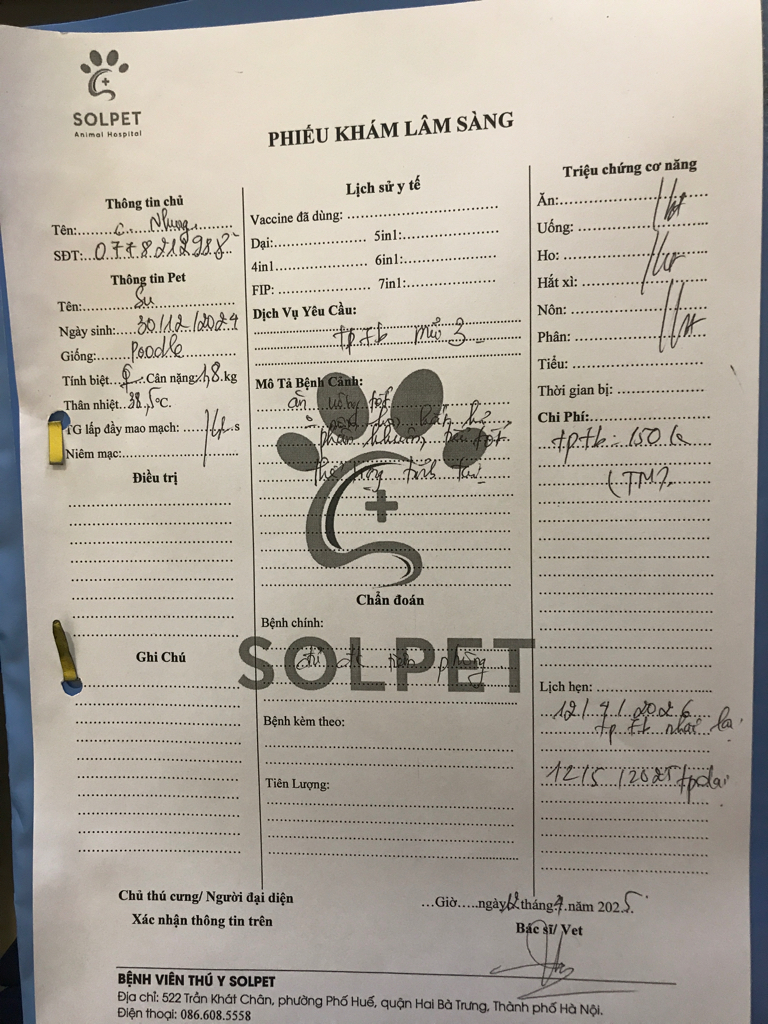 SOLPET
Animal Hospital
PHIẾU KHÁM LÂM SÀNG
Thông tin chủ
Tên: C. Nhung
SĐT: 0778212988
Thông tin Pet
Tên: Su
Ngày sinh: 30/12/2024
Giống: Poodle
Tính biệt ♀ Cân nặng 1,8 kg
Thân nhiệt 38,5°C.
TG lấp đầy mao mạch: s
Niêm mạc:
Điều trị
Ghi Chú
Lịch sử y tế
Vaccine đã dùng:
Dại: 5in1:
4in1 6in1:
FIP: 7in1:
Dịch Vụ Yêu Cầu:
tptb mũi 3
Mô Tả Bệnh Cảnh:
ăn uống tốt
phân khuôn
Chẩn đoán
Bệnh chính:
SOLPET
đủ đk tiêm phòng
Bệnh kèm theo:
Tiên Lượng:
Triệu chứng cơ năng
Ăn:
Uống:
Ho:
Hắt xì:
Nôn:
Phân:
Tiểu:
Thời gian bị:
Chi Phí:
tptb: 150k
(TM)
Lịch hẹn:
12/4/2026
tptb nhắc lại
12/5/2025 tp dại
Chủ thú cưng/ Người đại diện
Xác nhận thông tin trên
...Giờ.....ngày 12 tháng 4 năm 2025
Bác sĩ/ Vet
BỆNH VIÊN THÚ Y SOLPET
Địa chỉ: 522 Trần Khát Chân, phường Phố Huế, quận Hai Bà Trưng, Thành phố Hà Nội.
Điện thoại: 086.608.5558